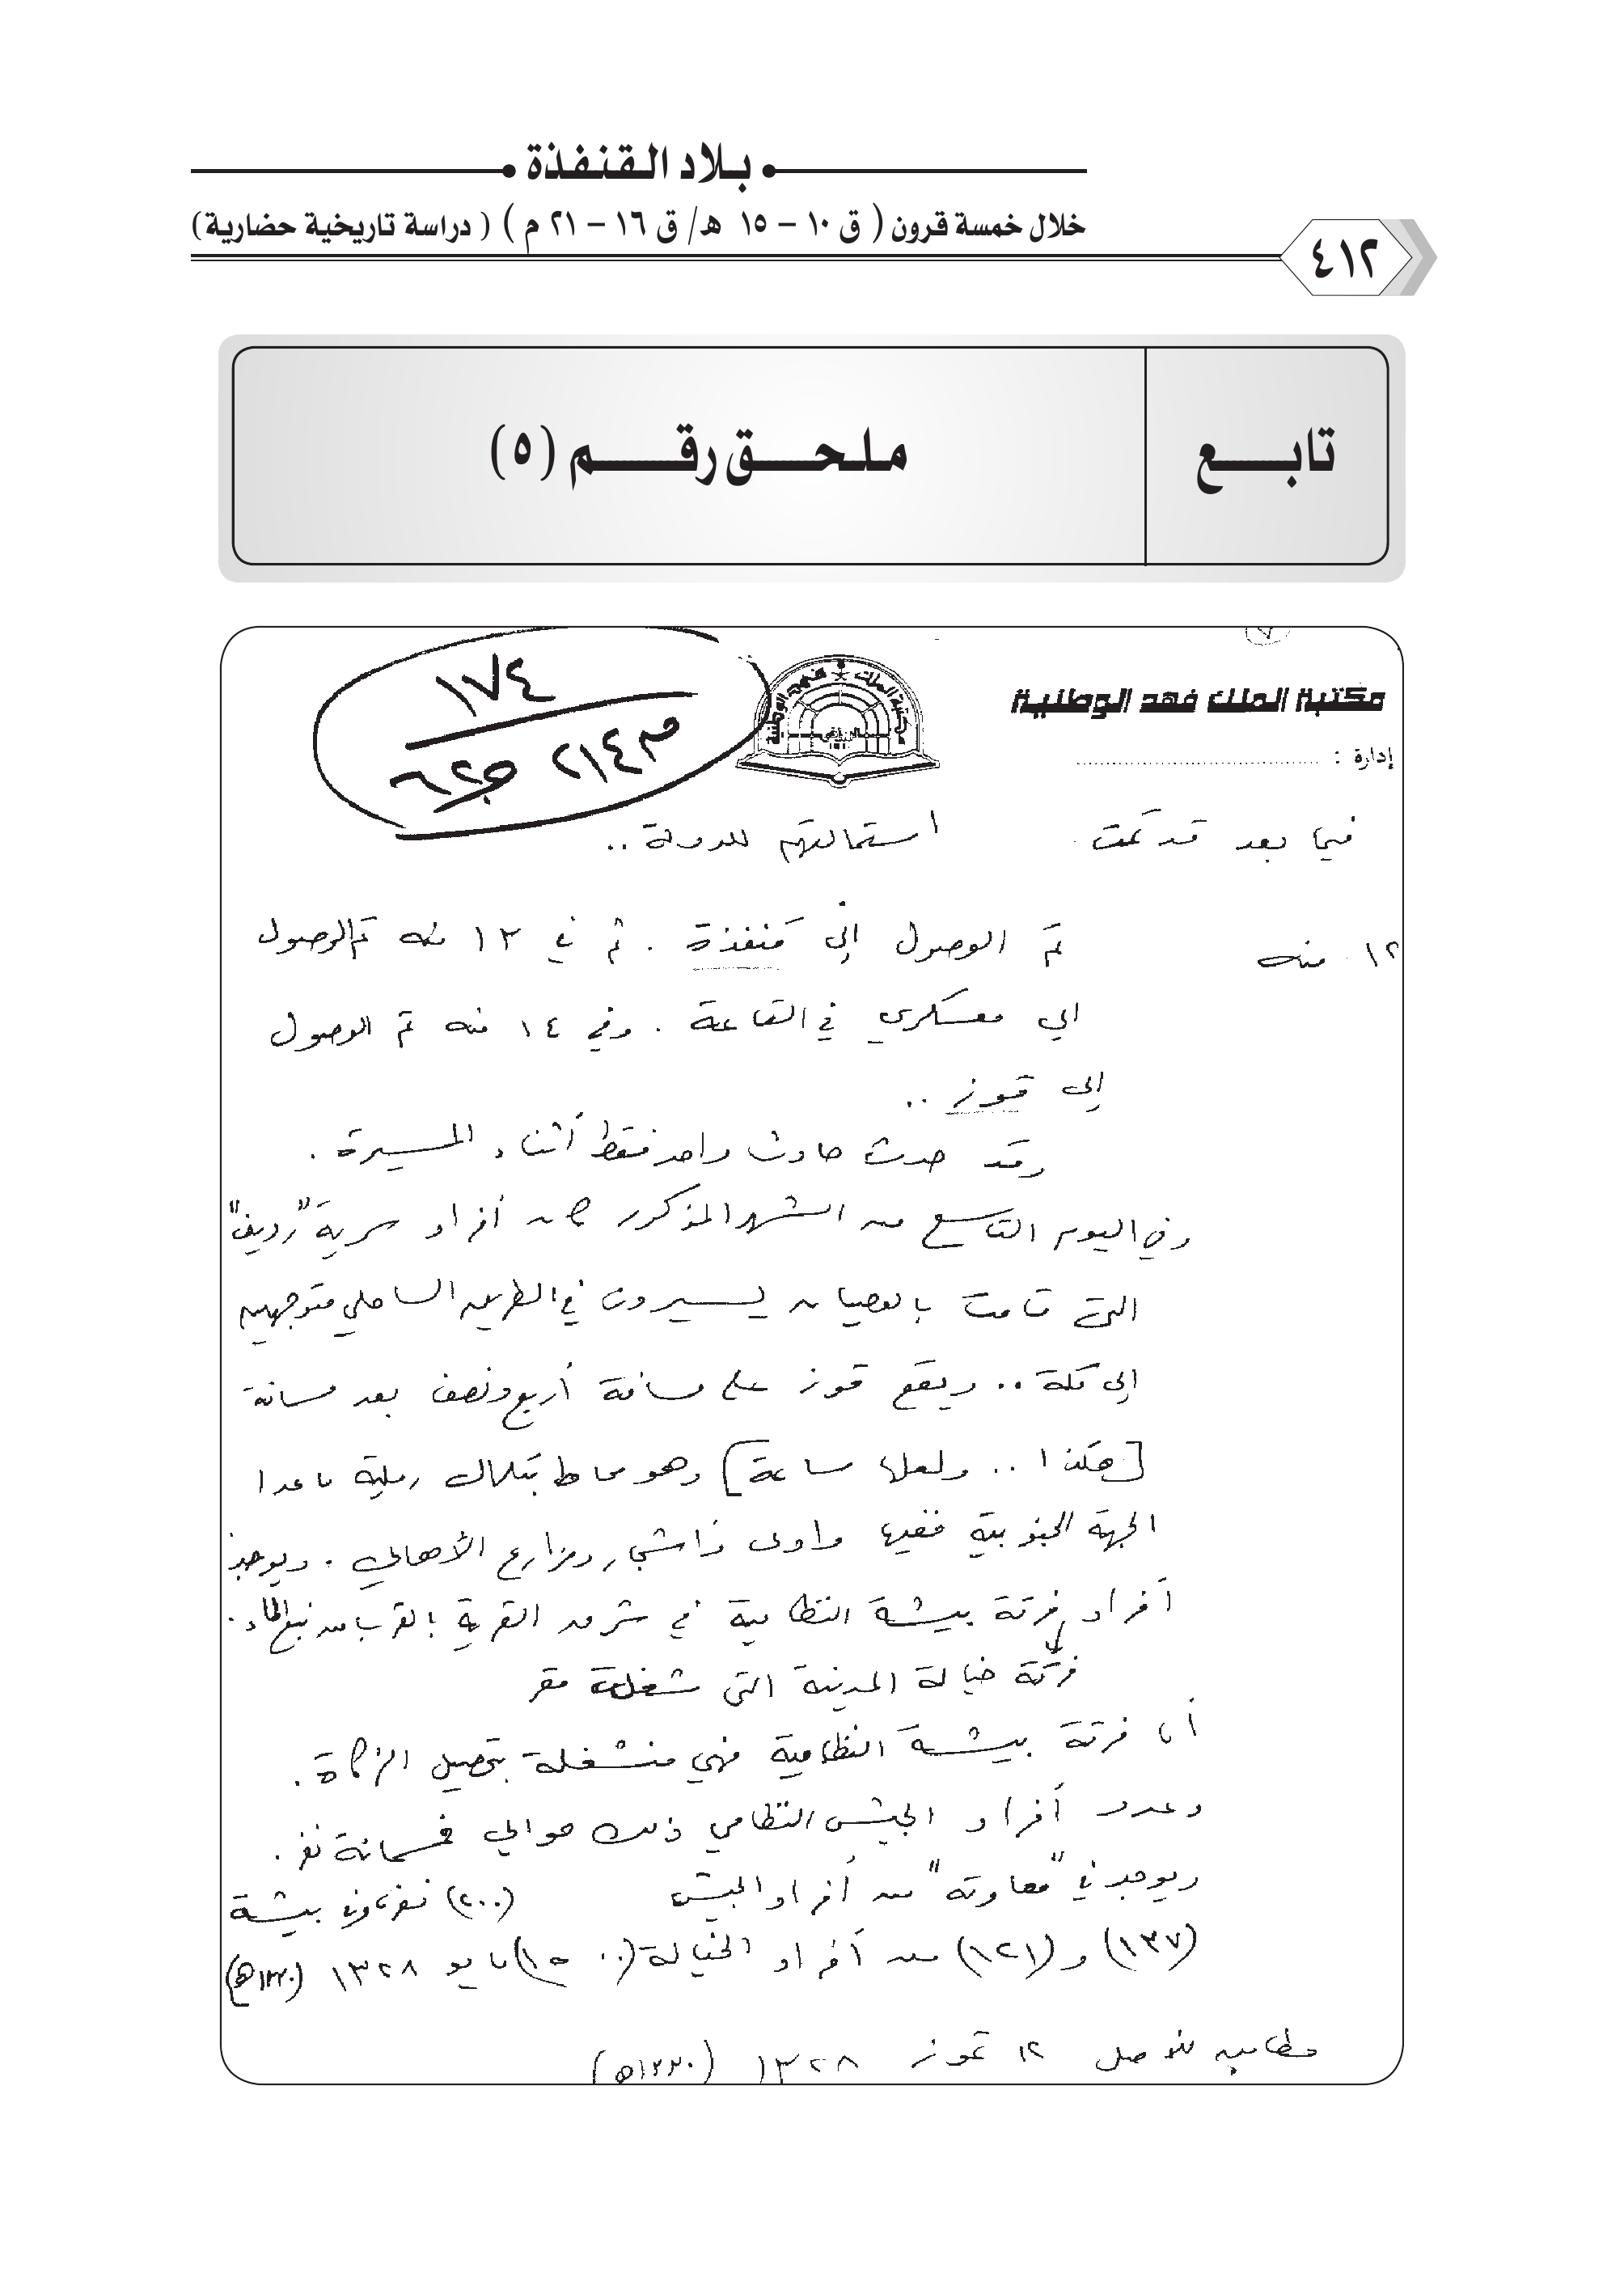 بلاد القنفذة
خلال خمسة قرون ( ق ١٠ – ١٥ هـ/ ق ١٦ – ٢١ م ) ( دراسة تاريخية حضارية)
٤١٢
تابع
ملحق رقم (٥)
مكتبة الملك فهد الوطنية
إدارة :
١٧٤
٢١٤
فيما بعد قد تمت استمالتهم للدولة ..
١٢ منه تم الوصول إلى قنفذة . ثم في ١٣ منه تم الوصول
الى معسكرى في القاعة . وفي ١٤ منه تم الوصول
إلى قوز ..
وقد حدث حادث واحد فقط أثناء المسيرة .
وفي اليوم التاسع من الشهر المذكور كان أفراد سرية "رديف"
التى قامت بالعصيان يسيرون في الطريق الساحلي متوجهين
إلى مكة .. ويقع قوز على مسافة أربع ونصف بعد مسافة
[هكذا .. ولعلها ساعة] وهو محاط بتلال رملية ما عدا
الجهة الجنوبية ففيها وادى ذا شجار ومزارع الأهالي . ويوجد
أفراد فرقة بيشة النظامية في شرق القرية بالقرب من نبع الماء .
فرقة خيالة المدينة التى شغلت مقر
أن فرقة بيشة النظامية فهي منشغلة بتحصيل الزكاة .
وعدد أفراد الجيش النظامي ذلك حوالي خمسمائة نفر .
ويوجد في "معاوته" من أفراد الجيش (٢٠٠) نفر وفي بيشة
(١٣٧) و (١٢١) من أفراد الخيالة (١٥٠٠) مايو ١٣٢٨ (١٣٣٠هـ)
مطابق للأصل ١٢ تموز ١٣٢٨ (١٣٣٠هـ)